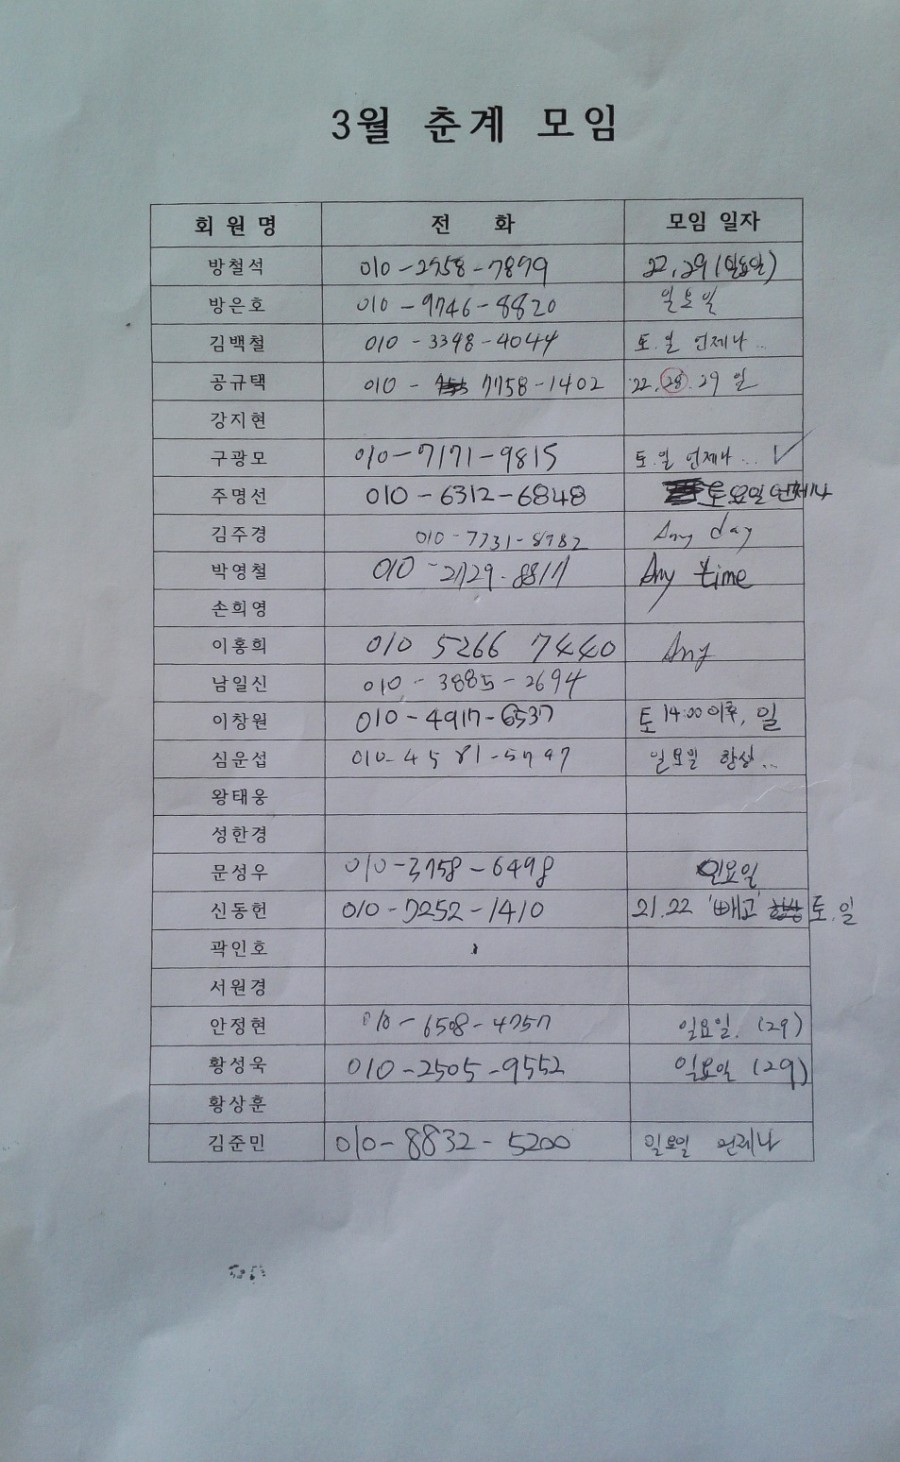 3월 춘계 모임
회원명 전 화 모임 일자
방철석 010-2958-7899 22, 29 (일요일)
방은호 010-9746-8820 일요일
김백철 010-3398-4044 토.일 언제나...
공규택 010- 7758-1402 22, 28, 29 일
강지현
구광모 010-7171-9815 토.일 언제나...✓
주명선 010-6312-6848 토요일 언제나
김주경 010-7731-8782 Any day
박영철 010-2729-8817 Any time
손희영
이홍희 010 5266 7440 Any
남일신 010-3885-2694
이창원 010-4917-6537 토 14:00 이후, 일
심운섭 010-4581-5797 일요일 항상...
왕태웅
성한경
문성우 010-3758-6498 일요일
신동헌 010-7252-1410 21.22 '빼고' 토.일
곽인호
서원경
안정현 010-6508-4757 일요일. (29)
황성욱 010-2505-9552 일요일 (29)
황상훈
김준민 010-8832-5200 일요일 언제나